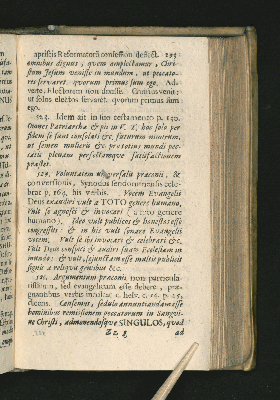 apristis Reformatorũ confessam deflect. 293
omnibus dignus, quem amplectamur, Chri-
stum Jesum venisse in mundum, ut peccato-
res servaret. quorum primus sum ego. Ad-
verte. Electorem non dixisse. Christus venit:
ut solos electos servaret. quorum primus sum
ego.
123. Idem ait in suo testamento p. 130.
Omnes Patriarchæ & pii in V. T. hoc solo per
fidem se sunt consolati &c. futurum nimirum,
ut semen mulieris &c. pro totius mundi pec-
catis plenam perfectamque satisfactionem
præstet.
129. Voluntatem universalis præconii, &
conversionis, Synodus sendomiriensis cele-
brat p. 164. his verbis. Vocem Evangelii
Deus exaudiri vult a TOTO genere humano,
Vult se agnosci & invocari (a toto genere
humano;) Ideo vult publicos & honestos esse
congressus: & in his vult sonare Evangelii
vocem, Vult se ibi invocari & celebrari &c.
Vult Deus conspici & audiri suam Ecclesiam in
mundo: & vult, sejunctam esse multis publicis
signis a reliquis gentibus &c.
130. Argumentum præconii non particula-
rissimum, sed evangelicum esse debere, præ-
gnantibus verbis
dicens. Censemus, sedulo annuntiandam esse
hominibus remissionem peccatorum in Sangui-
ne Christi, admonendosque SINGULOS, quod
ad